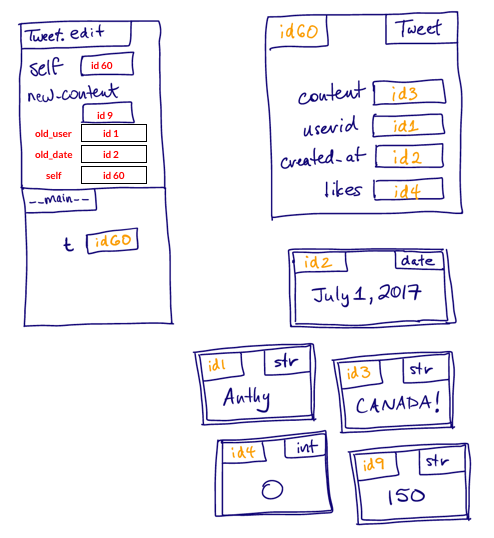 Tweet.edit
self id 60
new-content
id 9
old_user id 1
old_date id 2
self id 60
--main--
t id60
id60 Tweet
content id3
userid id1
created_at id2
likes id4
id2 date
July 1, 2017
id1 str
Anthy
id3 str
CANADA!
id4 int
0
id9 str
150